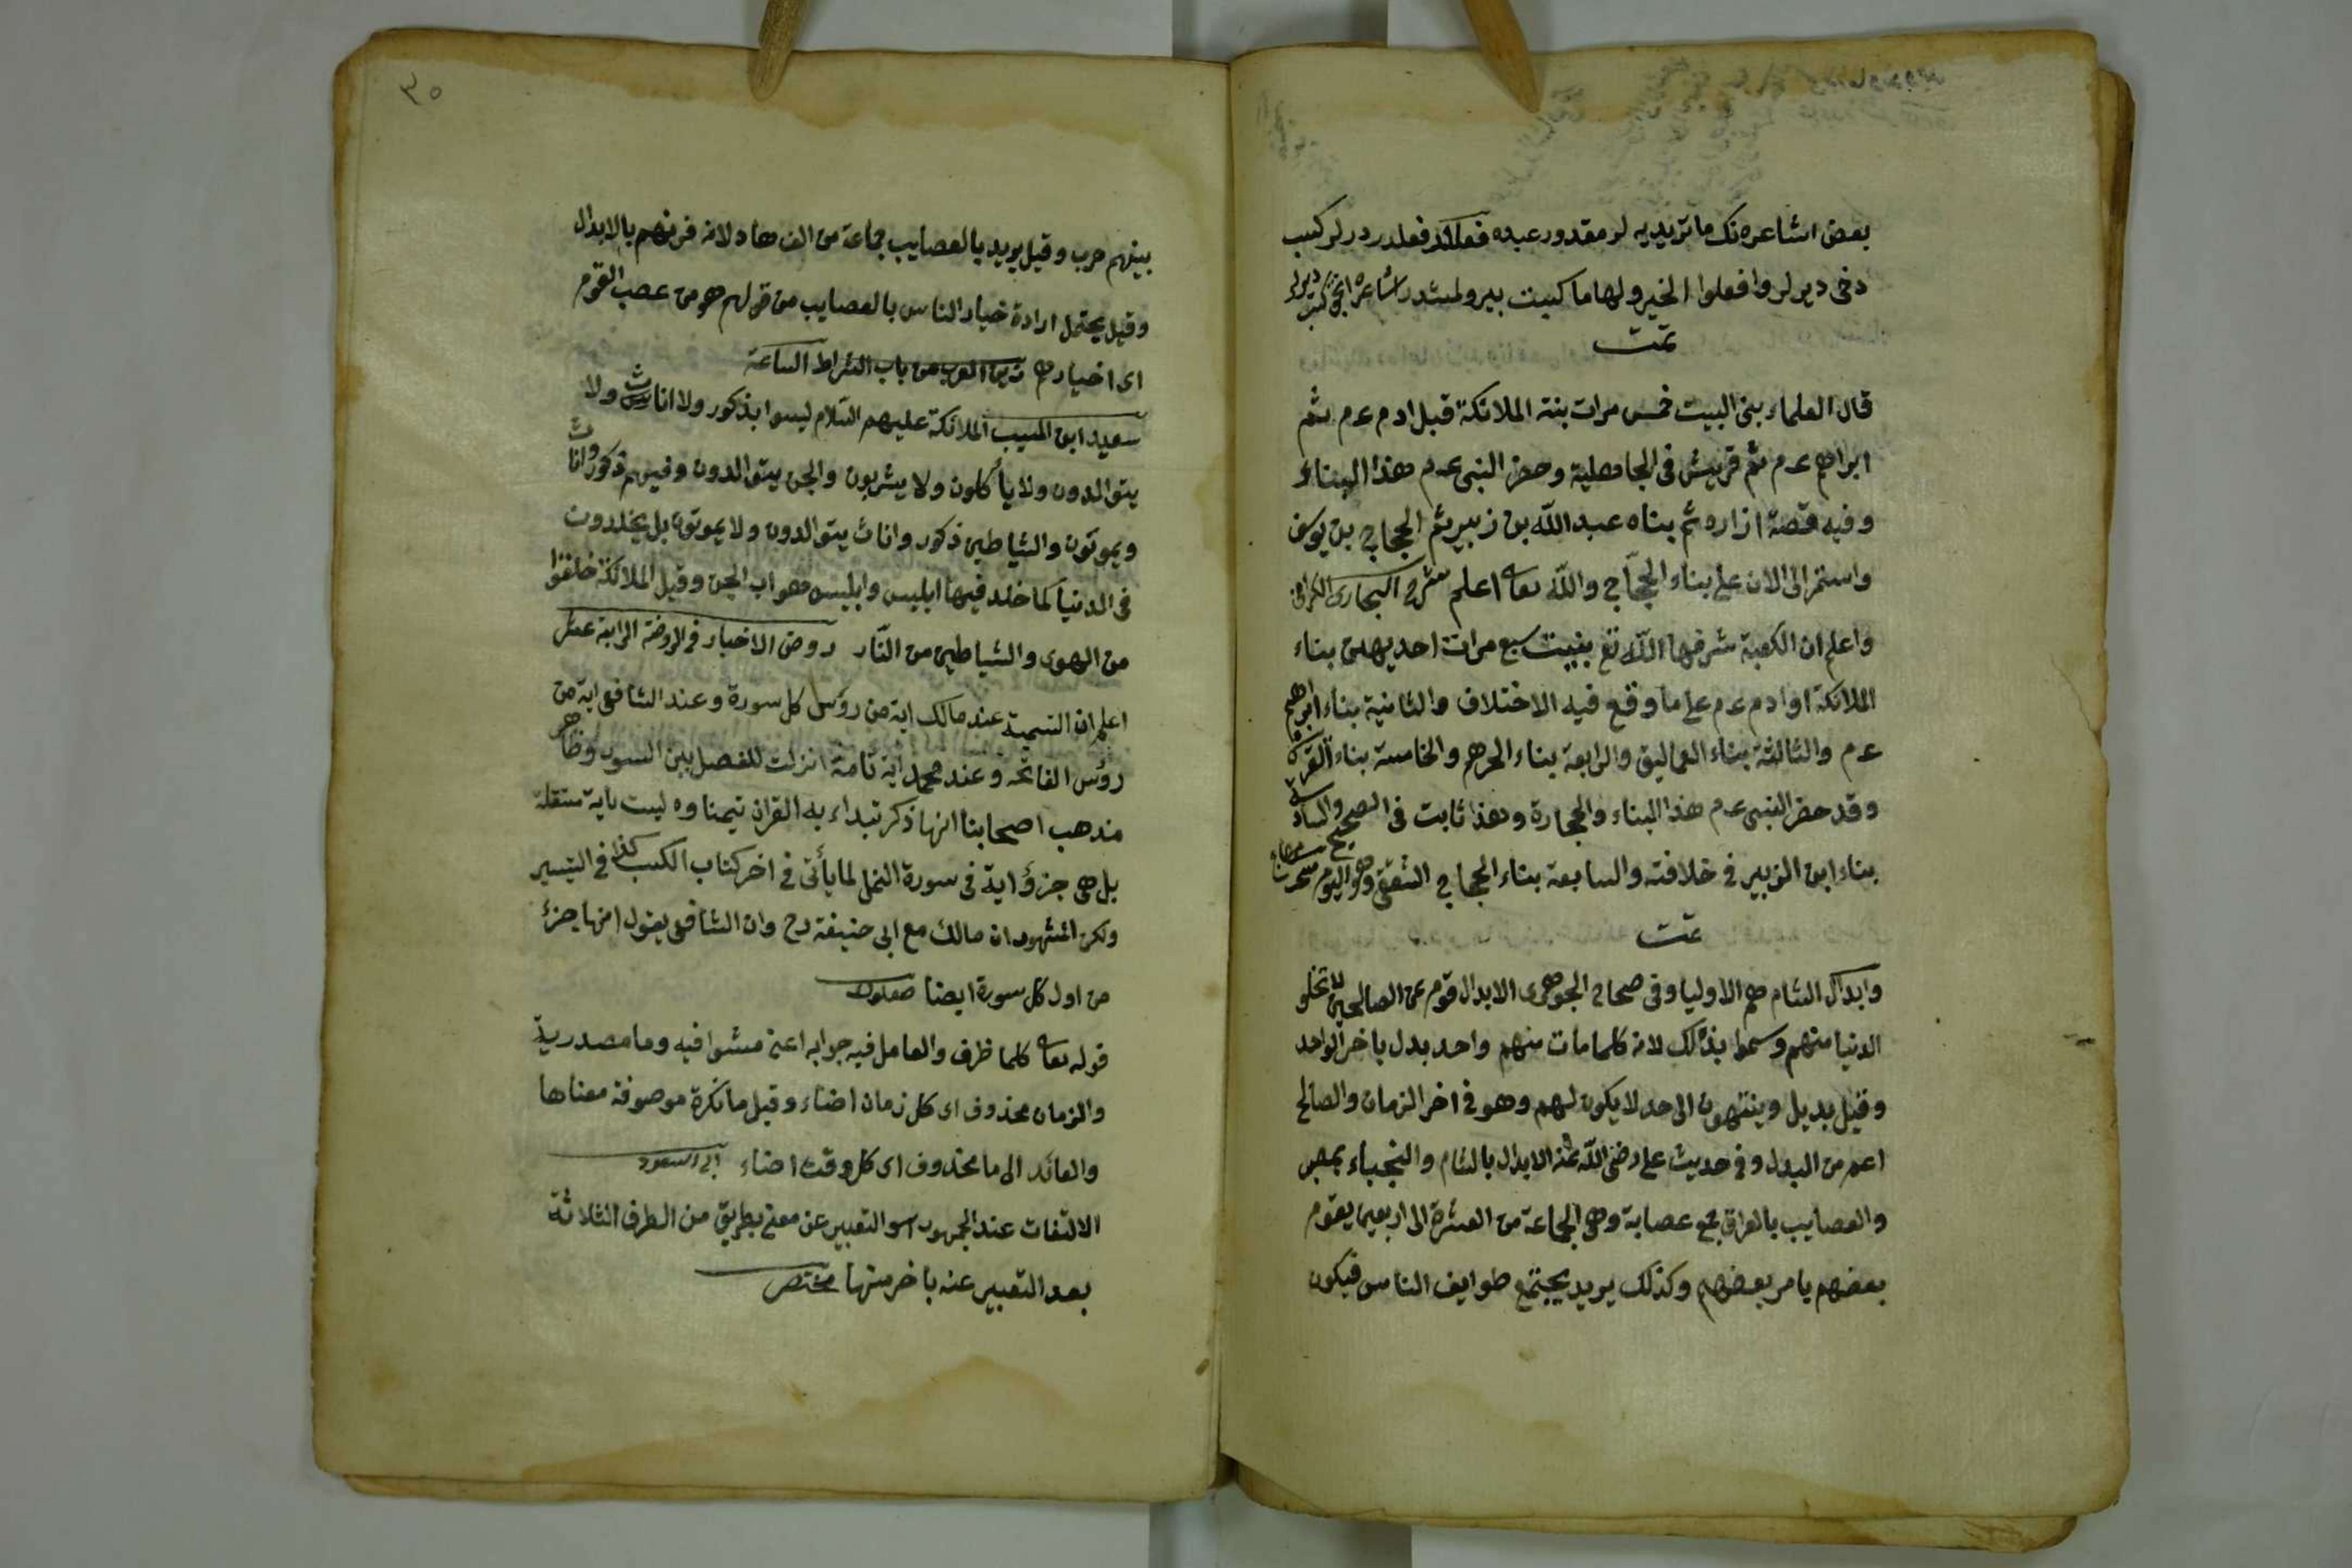 بعض اشاعره نك ماتريديه لر مقدور عبده فعلدر در لر كسب
دخی ديرلر وافعلوا الخير ولها ما كسبت
تمت
قال العلماء بنى البيت خمس مرات بنته الملائكة قبل ادم عم ثم
ابراهيم عم ثم قريش فى الجاهلية وحضر النبى عم هذا البناء
وفيه قصة ازاره ثم بناه عبد الله بن زبير ثم الحجاج بن يوسف
واستمر الى الان على بناء الحجاج والله تعالى اعلم شرح البخارى الكرمانى
واعلم ان الكعبة شرفها الله تع بنيت سبع مرات احديهن بناء
الملائكة او ادم عم على ما وقع فيه الاختلاف والثانية بناء ابرهيم
عم والثالثة بناء العماليق والرابعة بناء الجرهم والخامسة بناء القريش
وقد حضر النبى عم هذا البناء والحجارة وهذا ثابت فى الصحيح والسادسة
بناء ابن الزبير فى خلافته والسابعة بناء الحجاج الثقفى وهو اليوم
تمت
وابدال الشام هم الاوليا وفى صحاح الجوهرى الابدال قوم من الصالحين لا تخلو
الدنيا منهم وسموا بذلك لانه كلما مات منهم واحد بدل باخر الواحد
وقيل بديل وينتهون الى حد لا يكون لهم وهو فى اخر الزمان والصالح
اعم من البدل وفى حديث على رضى الله عنه الابدال بالشام والنجباء بمصر
والعصايب بالعراق جمع عصابة وهى الجماعة من العشرة الى اربعين يقوم
بعضهم يامر بعضهم وكذلك يريد يجتمع طوايف الناس فيكون
٣٥
بينهم حرب وقيل يريد بالعصايب جماعة من الزهاد لانه قرنهم بالابدال
وقيل يحتمل ارادة خيار الناس بالعصايب من قولهم هو من عصب القوم
اى اخيارهم زين العرب من باب اشراط الساعة
سعيد ابن المسيب الملائكة عليهم السلام ليسوا بذكور ولا اناث ولا
يتوالدون ولا يأكلون ولا يشربون والجن يتوالدون وفيهم ذكور واناث
ويموتون والشياطين ذكور واناث يتوالدون ولا يموتون بل يخلدون
فى الدنيا كما خلد فيها ابليس وابليس هو اب الجن وقيل الملائكة خلقوا
من الهوى والشياطين من النار روض الاخيار فى الروضة الرابعة عشر
اعلم ان التسمية عند مالك اية من رؤس كل سورة وعند الشافعى اية من
رؤس الفاتحه وعند محمد اية تامة انزلت للفصل بين السور وظاهر
مذهب اصحابنا انها ذكر تبداء به القران تيمنا وه ليست باية مستقلة
بل هى جزؤ اية فى سورة النمل لما يأتى فى اخر كتاب الكسب كذا فى التيسير
ولكن المشهور ان مالك مع ابى حنيفة رح وان الشافعى يقول انها جزء
من اول كل سورة ايضا
قوله تعالى كلما ظرف والعامل فيه جوابه اعنى مشوا فيه وما مصدرية
والزمان محذوف اى كل زمان اضاء وقيل ما نكرة موصوفة معناها
والعائد الى ما محذوف اى كل وقت اضاء ابى السعود
الالتفات عند الجمهور هو التعبير عن معنى بطريق من الطرف الثلاثة
بعد التعبير عنه باخر منها مختصر